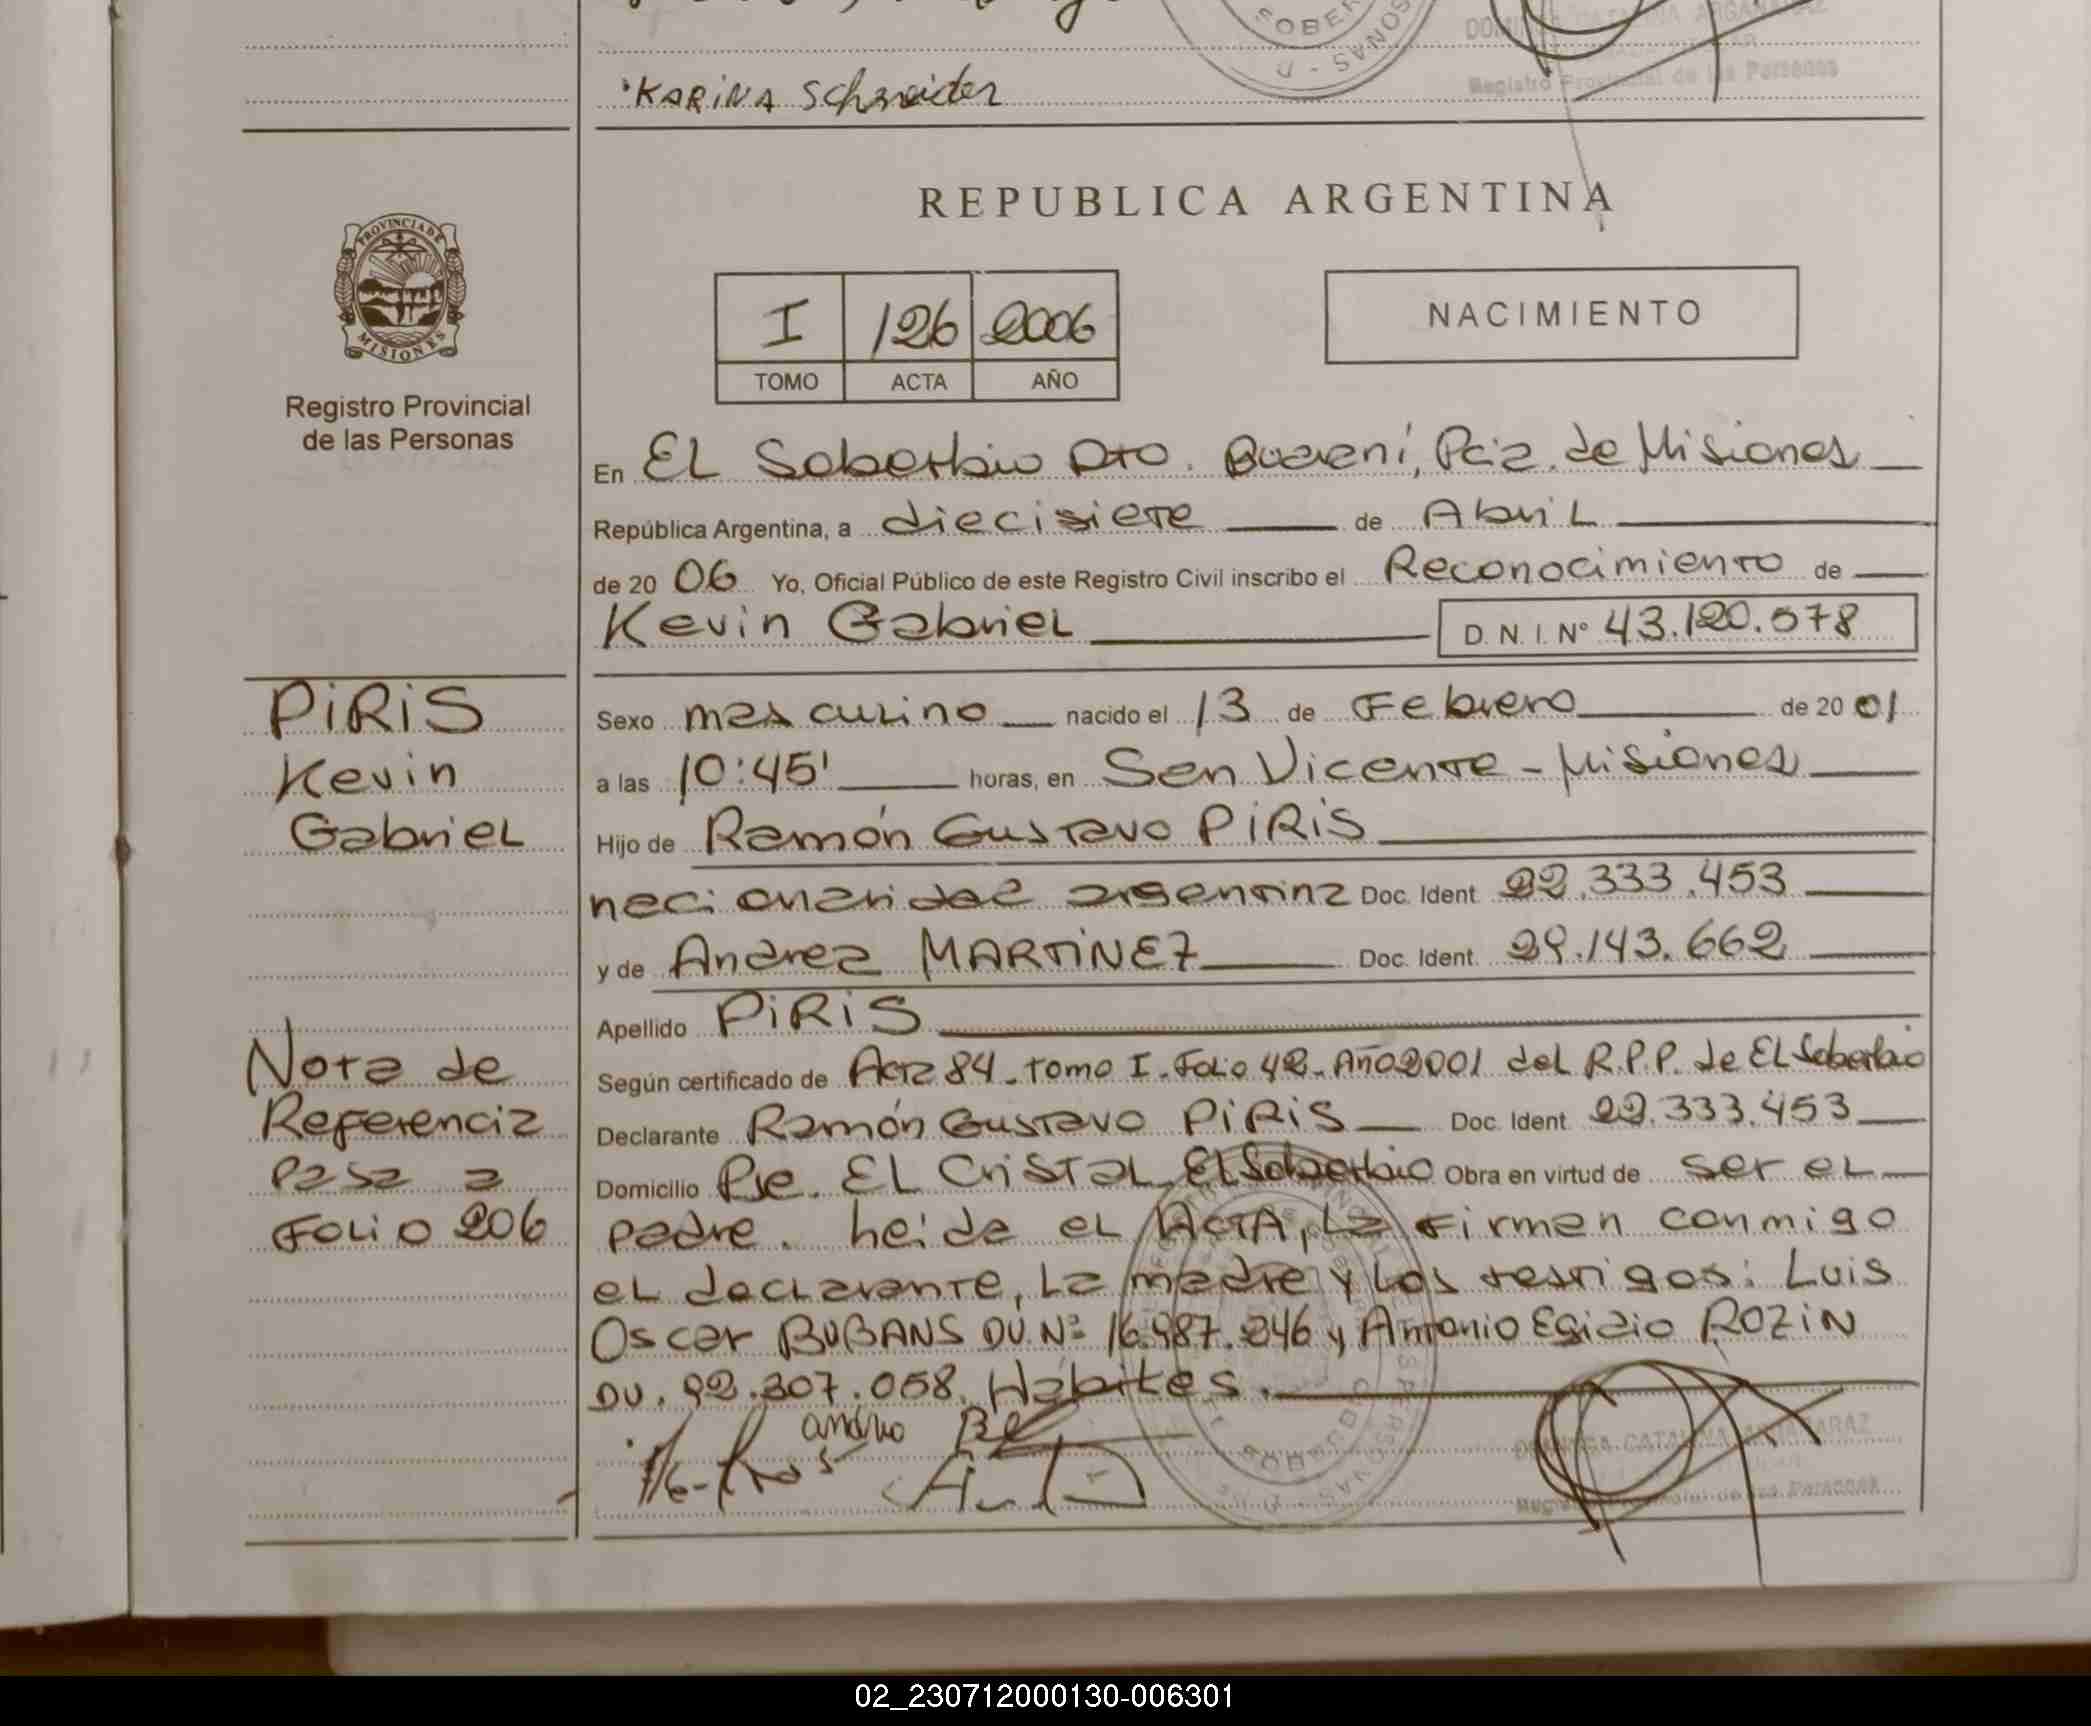 SOBER
SONAS - D
Registro Provincial de las Personas
KARINA Schneider
REPUBLICA ARGENTINA
PROVINCIA DE
MISIONES
Registro Provincial
de las Personas
I 126 2006
TOMO ACTA AÑO
NACIMIENTO
En EL Soberbio Dto. Guaraní, Pcia. de Misiones
República Argentina, a diecisiete de Abril
de 20 06 Yo, Oficial Público de este Registro Civil inscribo el Reconocimiento de
Kevin Gabriel D. N. I. N° 43.120.578
PIRIS
Kevin
Gabriel
Sexo masculino nacido el 13 de Febrero de 20 01
a las 10:45' horas, en San Vicente - Misiones
Hijo de Ramón Gustavo PIRIS
nacionalidad argentina Doc. Ident. 22.333.453
y de Andrea MARTINEZ Doc. Ident. 29.143.662
Apellido PIRIS
Nota de
Referencia
Pasa a
Folio 206
Según certificado de Acta 84. Tomo I. Folio 42. Año 2001 del R.P.P. de El Soberbio
Declarante Ramón Gustavo PIRIS Doc. Ident. 22.333.453
Domicilio Pje. EL Cristal El Soberbio Obra en virtud de ser el
padre. heida el ACTA, La Firman conmigo
el declarante, La madre y Los testigos: Luis
Oscar BUBANS DU. N° 16.987.246 y Antonio Egidio ROZIN
DU. 92.307.058. Hábiles.
Registro Provincial de las Personas
02_230712000130-006301